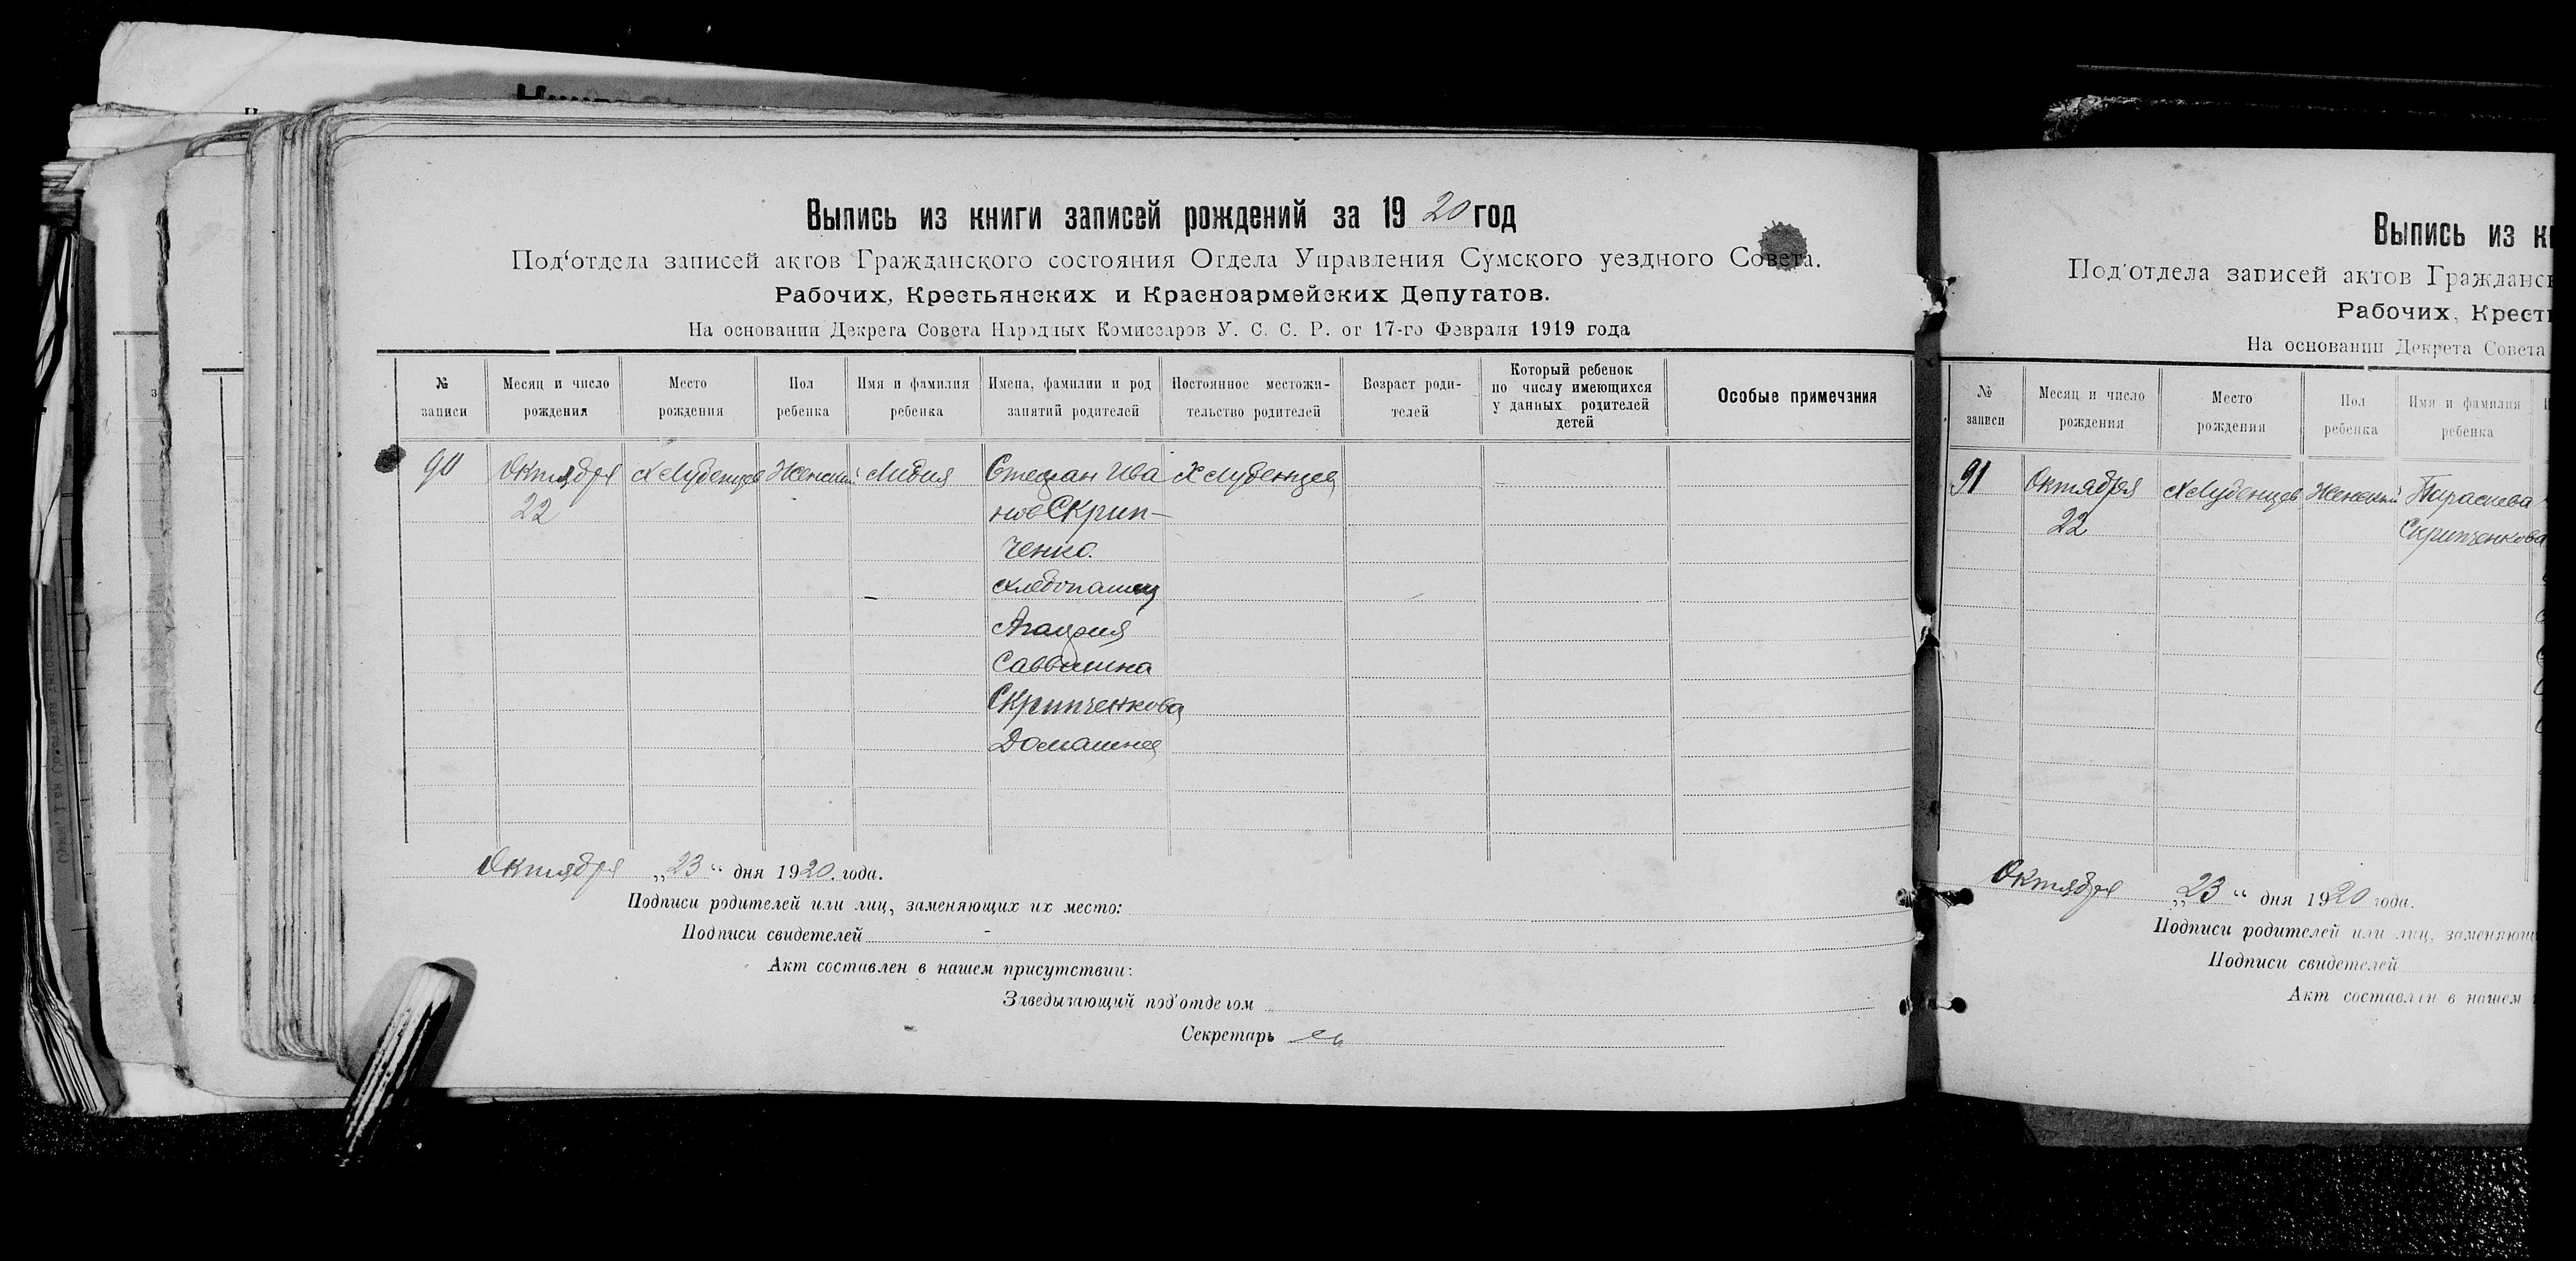 Выпись из книги записей рождений за 1920 год
Под'отдела записей актов Гражданского состояния Отдела Управления Сумского уездного Совета.
Рабочих, Крестьянских и Красноармейских Депутатов.
На основании Декрета Совета Народных Комиссаров У. С. С. Р. от 17-го Февраля 1919 года
№ записи
Месяц и число рождения
Место рождения
Пол ребенка
Имя и фамилия ребенка
Имена, фамилии и род занятий родителей
Постоянное местожи-
тельство родителей
Возраст роди-
телей
Который ребенок
по числу имеющихся
у данных родителей
детей
Особые примечания
90
Октября
22
Х Лубенцев
Женский
Лидия
Стефан Ива
нов Скрип-
ченко.
хлебопашец
Агафия
Саввишна
Скрипченкова
Домашнее
Х Лубенцев
Октября „23“ дня 1920. года.
Подписи родителей или лиц, заменяющих их место:
Подписи свидетелей
Акт составлен в нашем присутствии:
Заведывающий под'отделом
Секретарь
Выпись из
Под'отдела записей актов
Рабочих,
На основании Декрета Совета
№ записи
Месяц и число рождения
Место рождения
Пол ребенка
Имя и фамилия ребенка
91
Октября
22
Х Лубенцев
Женский
Параскева
Скрипченкова
Октября „23“ дня 1920 года.
Подписи родителей или лиц,
Подписи свидетелей
Акт составлен в нашем